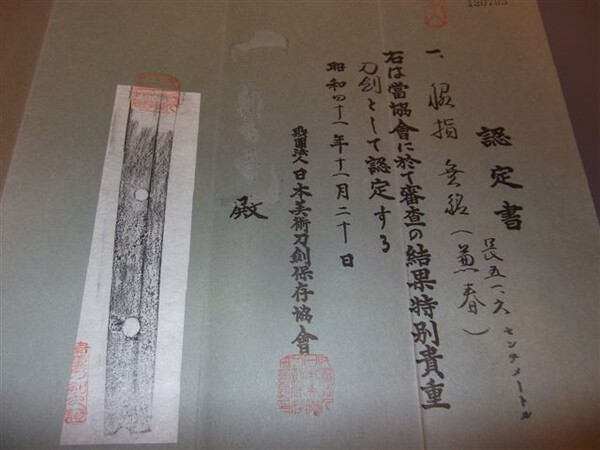 認定書
一、脇指 無銘（兼春）
長五一、六センチメートル
右は當協會に於て審査の結果特別貴重
刀劍として認定する
昭和四十一年十一月二十日
財團法人 日本美術刀劍保存協會
殿